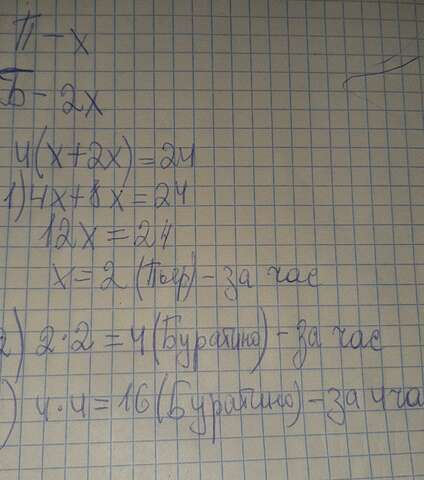 П - х
Б - 2х
4(х+2х)=24
1) 4х+8х=24
12х=24
х=2 (Пьер) - за час
2) 2·2=4 (Буратино) - за час
) 4·4=16 (Буратино) - за 4 ча